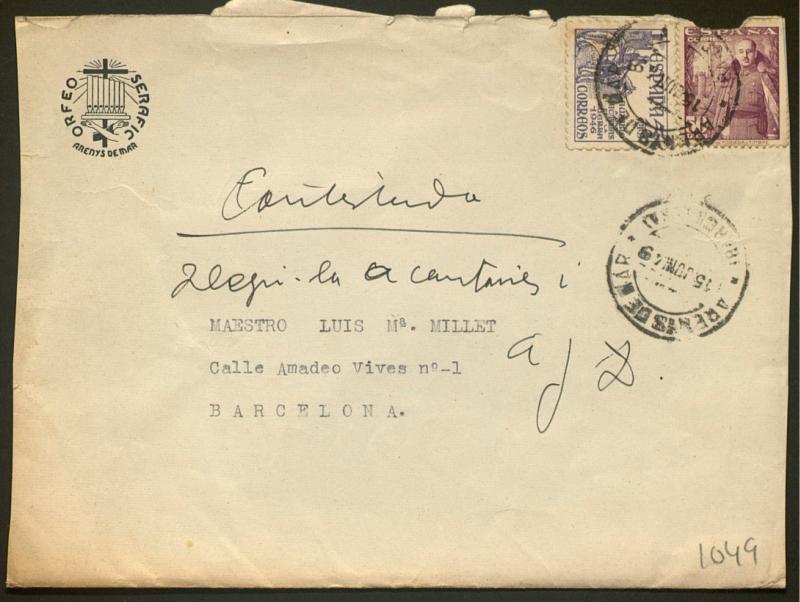 ORFEO SERAFIC
ARENYS DE MAR
ESPAÑA
CORREOS
1946
ESPAÑA
Contestada
llegir-la a cantaires i
MAESTRO LUIS Mª. MILLET
a J D.
Calle Amadeo Vives nº-1
BARCELONA.
ARENYS DE MAR
15 JUN. 49
1049